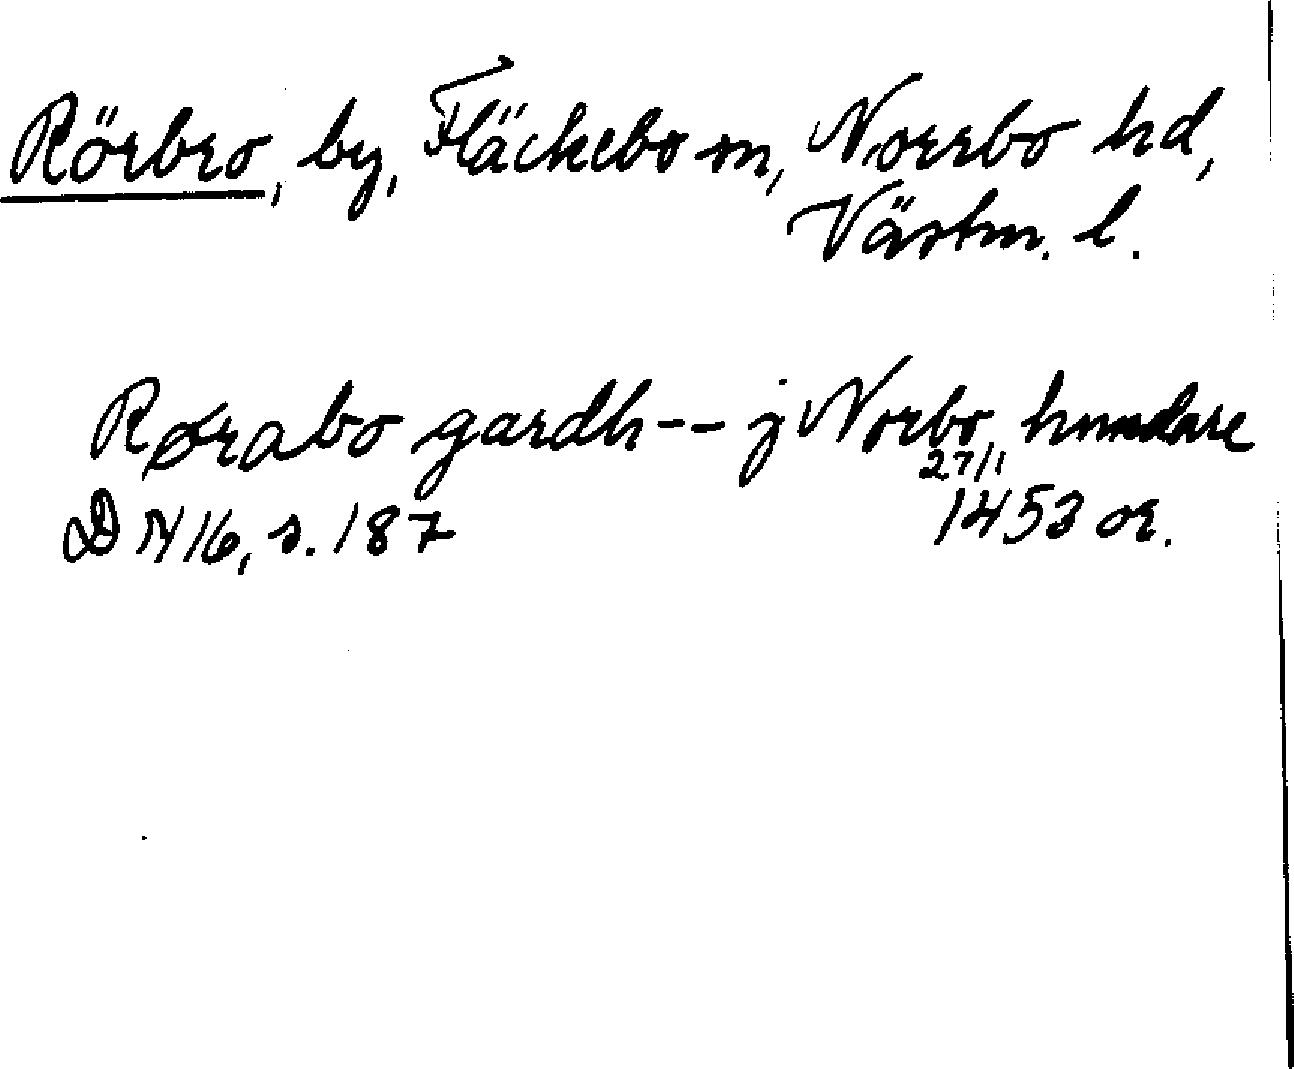 Rörbro, by, Fläckebo sn, Norrbo hd,
Västm. l.
Rørabo gardh -- j Norbo hundare
27/1
D N 16, s. 187 1453 or.